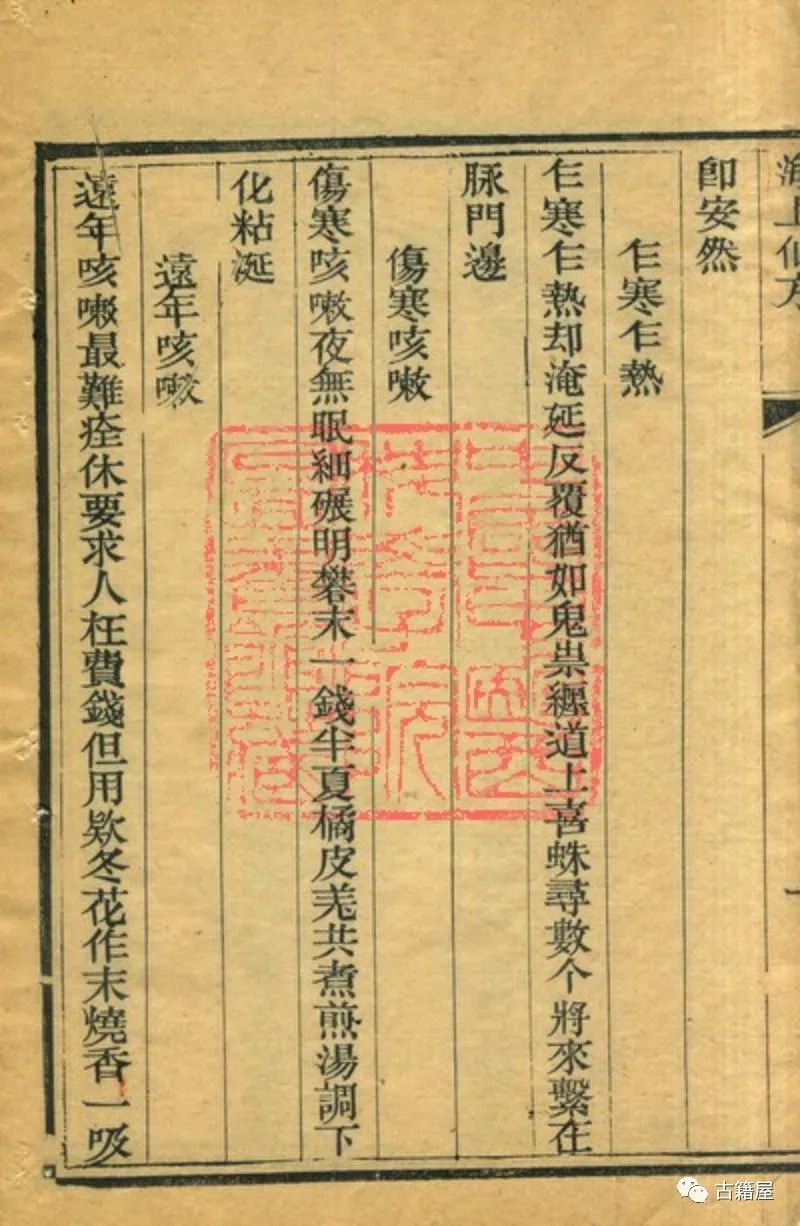 海上仙方
即安然
乍寒乍熱
乍寒乍熱却淹延反覆猶如鬼祟纏道上喜蛛尋數个將來繫在
脉門邊
傷寒咳嗽
傷寒咳嗽夜無眠細碾明礬末一錢半夏橘皮羌共煮煎湯調下
化粘涎
遠年咳嗽
遠年咳嗽最難痊休要求人枉費錢但用欵冬花作末燒香一吸
古籍屋